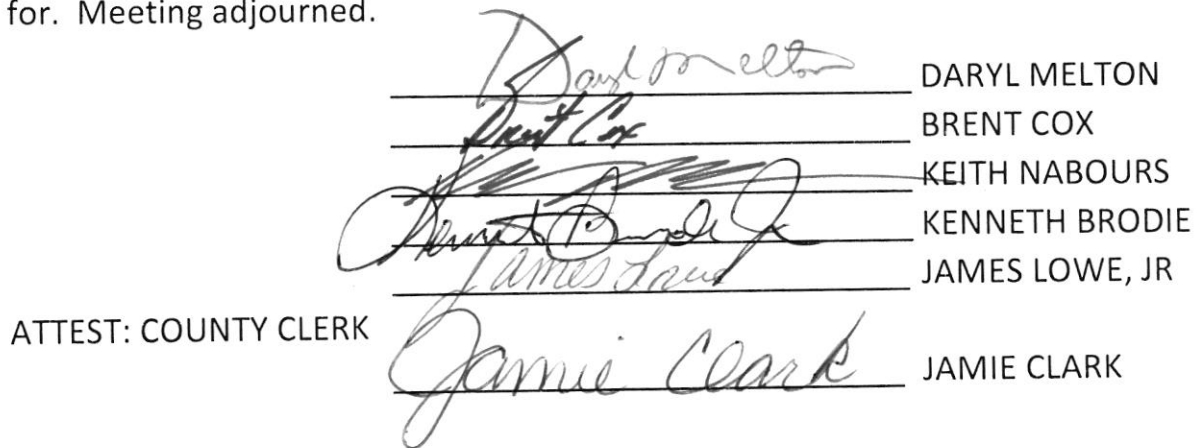 for. Meeting adjourned.
Daryl Melton DARYL MELTON
Brent Cox BRENT COX
KEITH NABOURS
Kenneth Brodie Jr KENNETH BRODIE
James Lowe JAMES LOWE, JR
ATTEST: COUNTY CLERK
Jamie Clark JAMIE CLARK